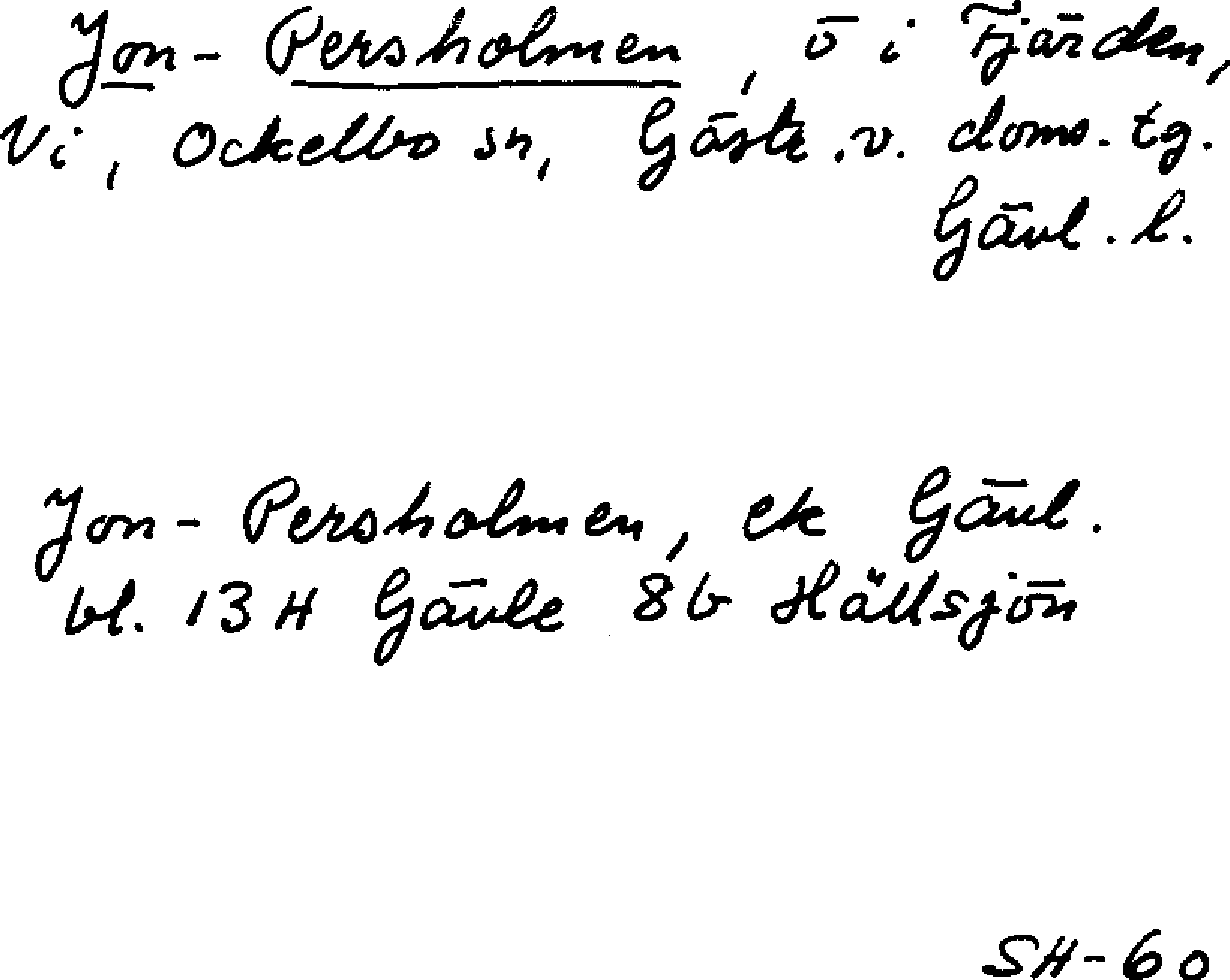 Jon-Persholmen, ö i Fjärden,
Vi, Ockelbo sn, Gästr. v. doms. tg.
Gävl. l.
Jon-Persholmen, ek Gävl.
bl. 13H Gävle 8b Hällsjön
SH-60